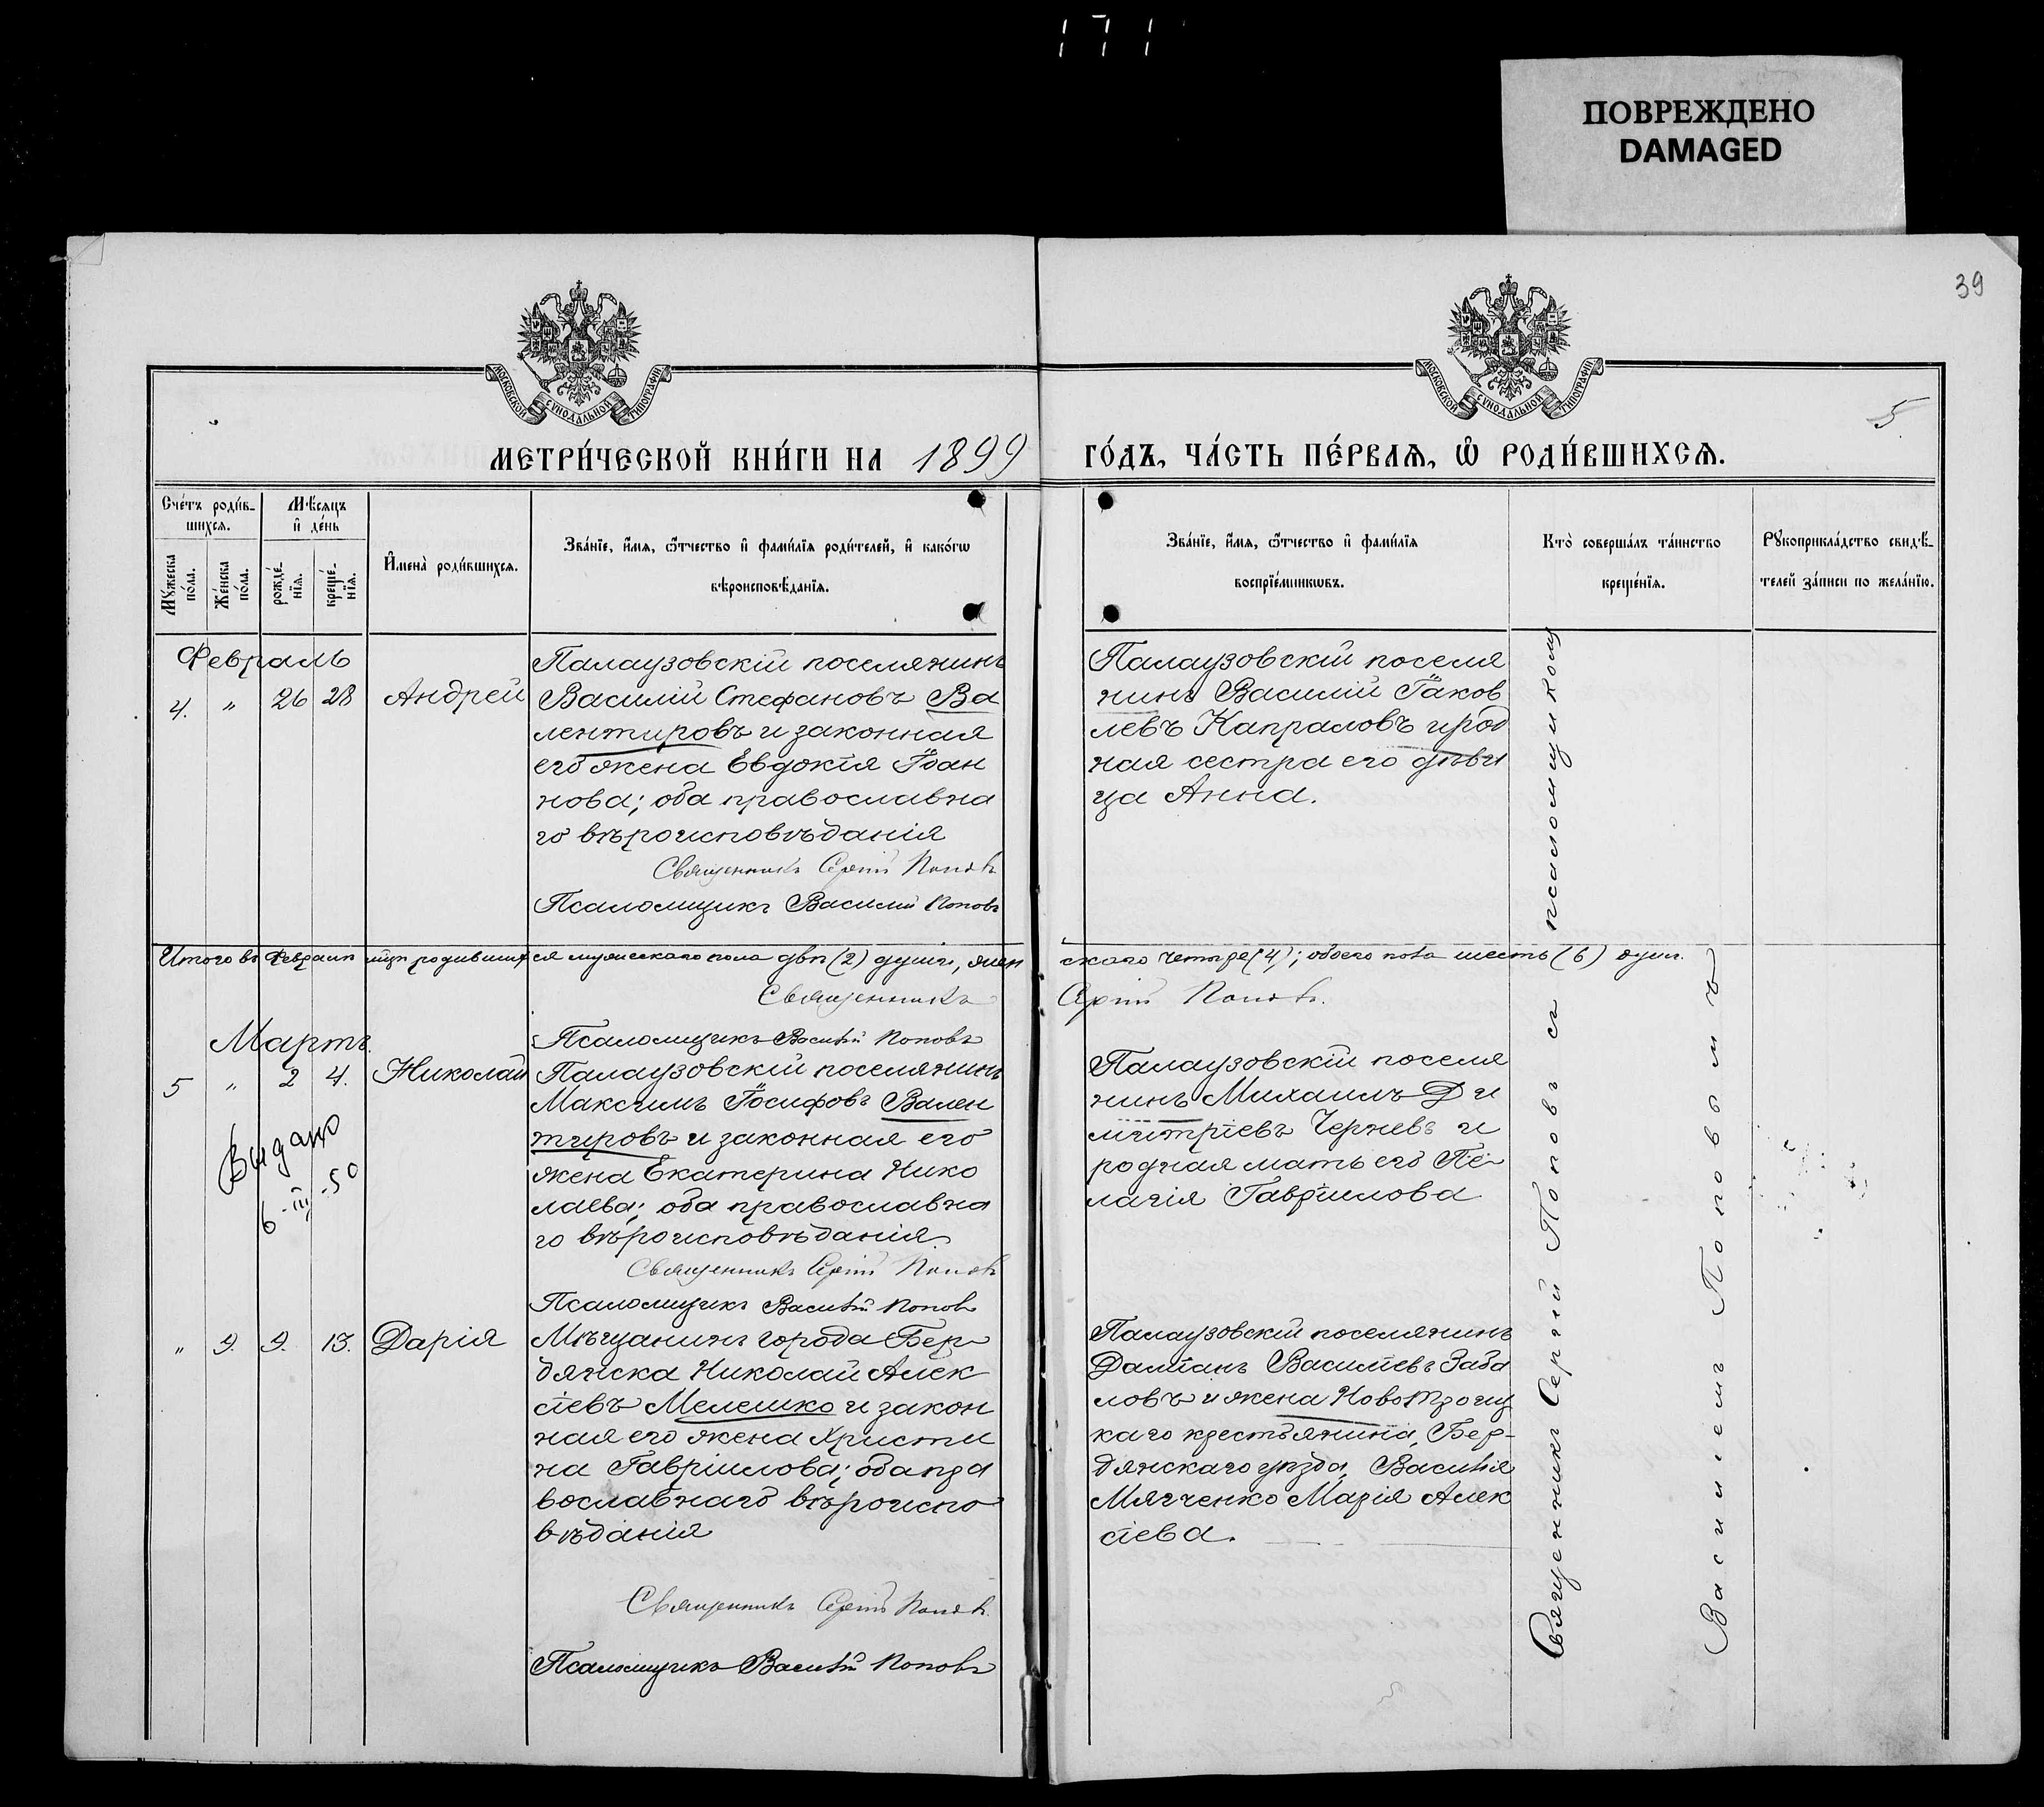 171
ПОВРЕЖДЕНО
DAMAGED
39
5
МОСКОВСКОЙ СѴНОДАЛЬНОЙ ТИПОГРАФІИ
МОСКОВСКОЙ СѴНОДАЛЬНОЙ ТИПОГРАФІИ
МЕТРИ́ЧЕСКОЙ КНИ́ГИ НА 1899 ГО́ДЪ, ЧА́СТЬ ПЕ́РВАѦ, Ѡ҆ РОДИ́ВШИХСѦ.
Сче́тъ роди́в-
шихсѧ.
Мѣ́сѧцъ
и҆ де́нь
Мꙋ́жеска
по́ла.
Же́нска
по́ла.
рожде́-
нїѧ.
креще́-
нїѧ.
И҆мена̀ роди́вшихсѧ.
Зва́нїе, и҆́мѧ, ѻ҆́тчество и҆ фами́лїѧ роди́телей, и҆ како́гѡ
вѣроисповѣ́данїѧ.
Зва́нїе, и҆́мѧ, ѻ҆́тчество и҆ фами́лїѧ
воспрїе́мникѡвъ.
Кто̀ соверша́лъ та́инство
креще́нїѧ.
Рꙋкоприкла́дство свидѣ́-
телей за́писи по жела́нїю.
Февраль
4. " 26 28 Андрей
Палаузовскій поселянинъ
Василій Стефановъ Ва
лентировъ и законная
его жена Евдокія Іоан
нова; оба православна
го вѣроисповѣданія
Священникъ Сергій Поповъ
Псаломщикъ Василій Поповъ
Палаузовскій поселя
нинъ Василій Іаков
левъ Капраловъ и род
ная сестра его дѣви
ца Анна.
Итого въ Февралѣ мцѣ родившихся мужескаго пола двѣ (2) души, жен
скаго четыре (4); обоего пола шесть (6) душ.
Священникъ Сергій Поповъ.
Псаломщикъ Василій Поповъ
Мартъ.
5 " 2 4. Николай
Палаузовскій поселянинъ
Максимъ Іосифовъ Вален
тировъ и законная его
жена Екатерина Нико
лаева; оба православна
го вѣроисповѣданія.
Священникъ Сергій Поповъ
Псаломщикъ Василій Поповъ
Выдано
6-III-50
Палаузовскій поселя
нинъ Михаилъ Ди
митріевъ Черневъ и
родная мать его Пе-
лагія Гавріилова
" 9. 9. 13. Дарія
Мѣщанинъ города Бер-
дянска Николай Алек
сіевъ Мелешко и закон
ная его жена Христи
на Гавріилова; оба пра
вославнаго вѣроиспо
вѣданія
Священникъ Сергій Поповъ.
Псаломщикъ Василій Поповъ
Палаузовскій поселянинъ
Даміанъ Василіевъ Заба
ловъ и жена Новотроиц
каго крестьянина, Бер-
дянскаго уѣзда, Василія
Мягченко Марія Алек
сіева.
Священникъ Сергій Поповъ съ псаломщикомъ
Василіемъ Поповымъ